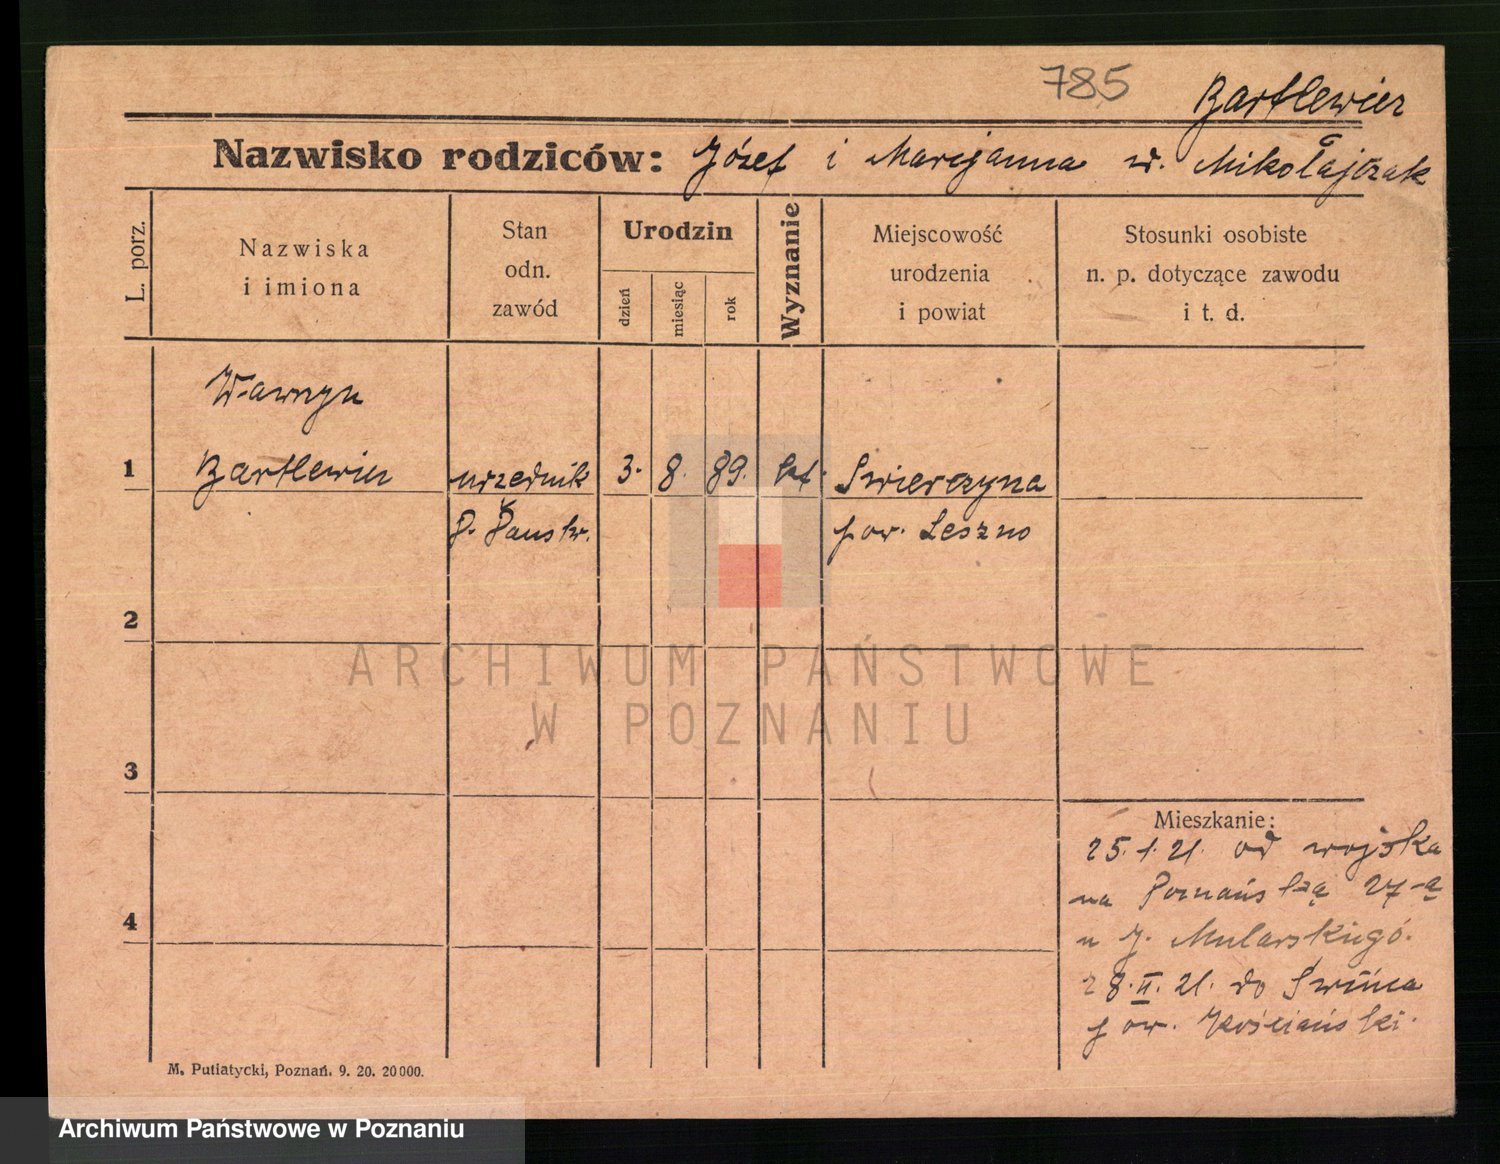 785
Bartlewicz
Nazwisko rodziców: Józef i Marcjanna z d. Mikołajczak
L. porz.
Nazwiska
i imiona
Stan
odn.
zawód
Urodzin
dzień
miesiąc
rok
Wyznanie
Miejscowość
urodzenia
i powiat
Stosunki osobiste
n. p. dotyczące zawodu
i t. d.
Wawrzyn
1 Bartlewicz urzednik 3. 8. 89. kat. Swierczyna
P. Państw. pow. Leszno
2
3
4
Mieszkanie:
25.1.21. od wojska
na Poznańską 27-a
u J. Mularskiego.
28.II.21. do
pow. Kościański.
M. Putiatycki, Poznań. 9. 20. 20000.
ARCHIWUM PAŃSTWOWE
W POZNANIU
Archiwum Państwowe w Poznaniu